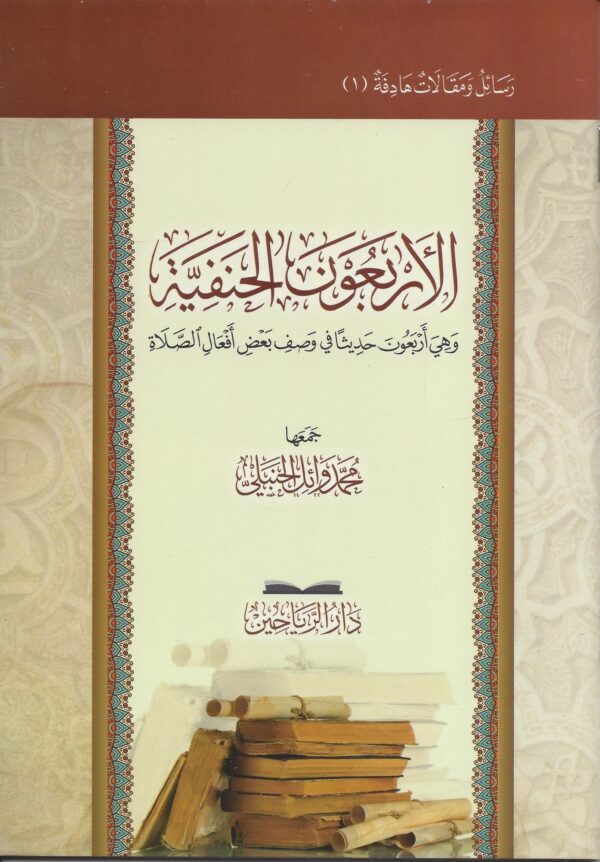 رَسَائِلُ وَمَقَالَاتٌ هَادِفَةٌ (١)
الأَرْبَعُوْنَ الحَنَفِيَّةِ
وَهِيَ أَرْبَعُونَ حَدِيثًا في وَصفِ بَعْضِ أَفْعَالِ الصَّلَاةِ
جَمَعَها
مُحَمَّد وَائِل الحَنْبَلِيّ
دَارُ الرَّيَاحِين